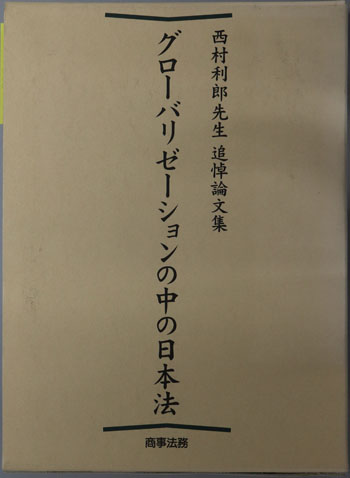 西村利郎先生 追悼論文集
グローバリゼーションの中の日本法
商事法務